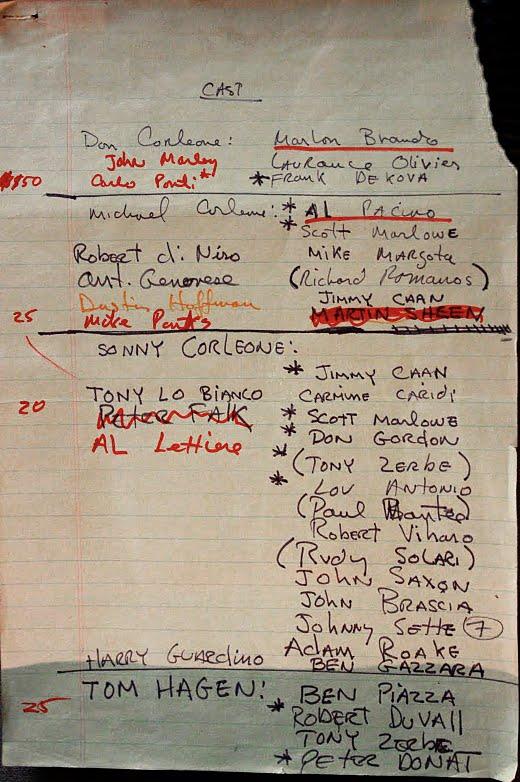 CAST
Don Corleone: Marlon Brando
John Marley Laurance Olivier
Carlo Ponti* *FRANK DEKOVA
$150
Michael Corleone: * AL PACINO
* Scott MARLOWE
Robert di Niro MIKE MARGOTA
Ant. Genovese (Richard Romanos)
Dustin Hoffman JIMMY CAAN
25 Mike Parks MARTIN SHEEN
SONNY CORLEONE:
* JIMMY CAAN
TONY LO BIANCO CARMINE CARIDI
20 Peter FALK * SCOTT MARLOWE
AL Lettiere * DON GORDON
* (TONY ZERBE)
* LOU ANTONIO
(Paul Banteo)
Robert Viharo
(RUDY SOLARI)
JOHN SAXON
JOHN BRASCIA
Johnny Sette 7
Adam ROAKE
HARRY GUARDINO BEN GAZZARA
TOM HAGEN: BEN PIAZZA
25 * ROBERT DUVAll
TONY ZERBE
* PETER DONAT